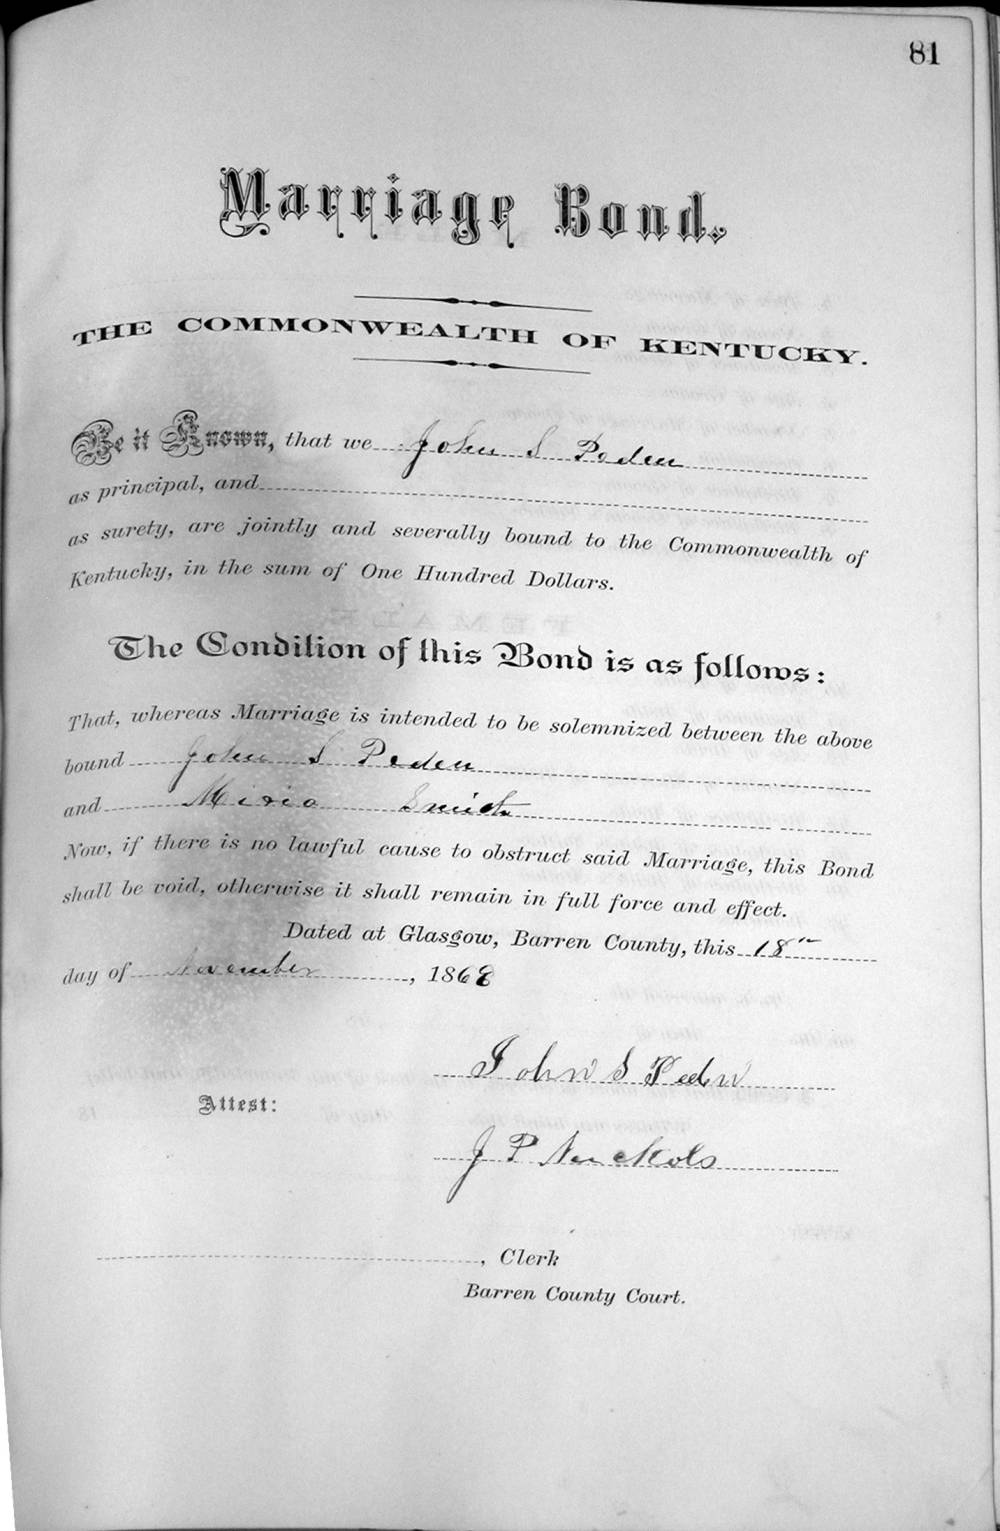 81
Marriage Bond.
THE COMMONWEALTH OF KENTUCKY.
Be it Known, that we John S Peden
as principal, and
as surety, are jointly and severally bound to the Commonwealth of
Kentucky, in the sum of One Hundred Dollars.
The Condition of this Bond is as follows:
That, whereas Marriage is intended to be solemnized between the above
bound John S Peden
and Smith
Now, if there is no lawful cause to obstruct said Marriage, this Bond
shall be void, otherwise it shall remain in full force and effect.
Dated at Glasgow, Barren County, this 18th
day of November, 1868
John S Peden
Attest:
J P Nuckols
, Clerk
Barren County Court.